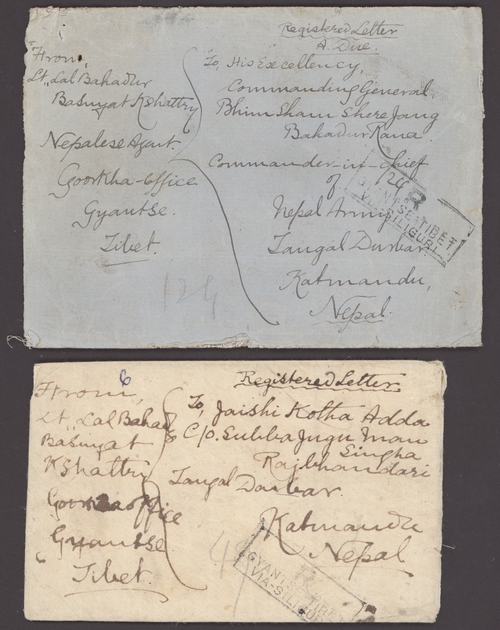 Registered Letter
A. Due.
From,
Lt., Lal Bahadur
Basnyat Kshattry
Nepalese Agent.
Goorkha-office
Gyantse.
Tibet.
To, His Excellency,
Commanding General
Bhim Sham Shere Jang
Bahadur Rana
Commander-in-chief
of
Nepal Army
Tangal Durbar.
Katmandu,
Nepal.
124
R
GYANTSE-TIBET
VIA-SILIGURI.
124
6
Registered Letter
From,
Lt., Lal Bahad
Basnyat
Kshattry
Goorkha office
Gyantse
Tibet.
To, Jaishi Kotha Adda
C/o. Subba Jugu Man
Singha
Rajbhandari
Tangal Darbar.
Katmandu
Nepal.
GYANTSE-TIBET
VIA-SILIGURI